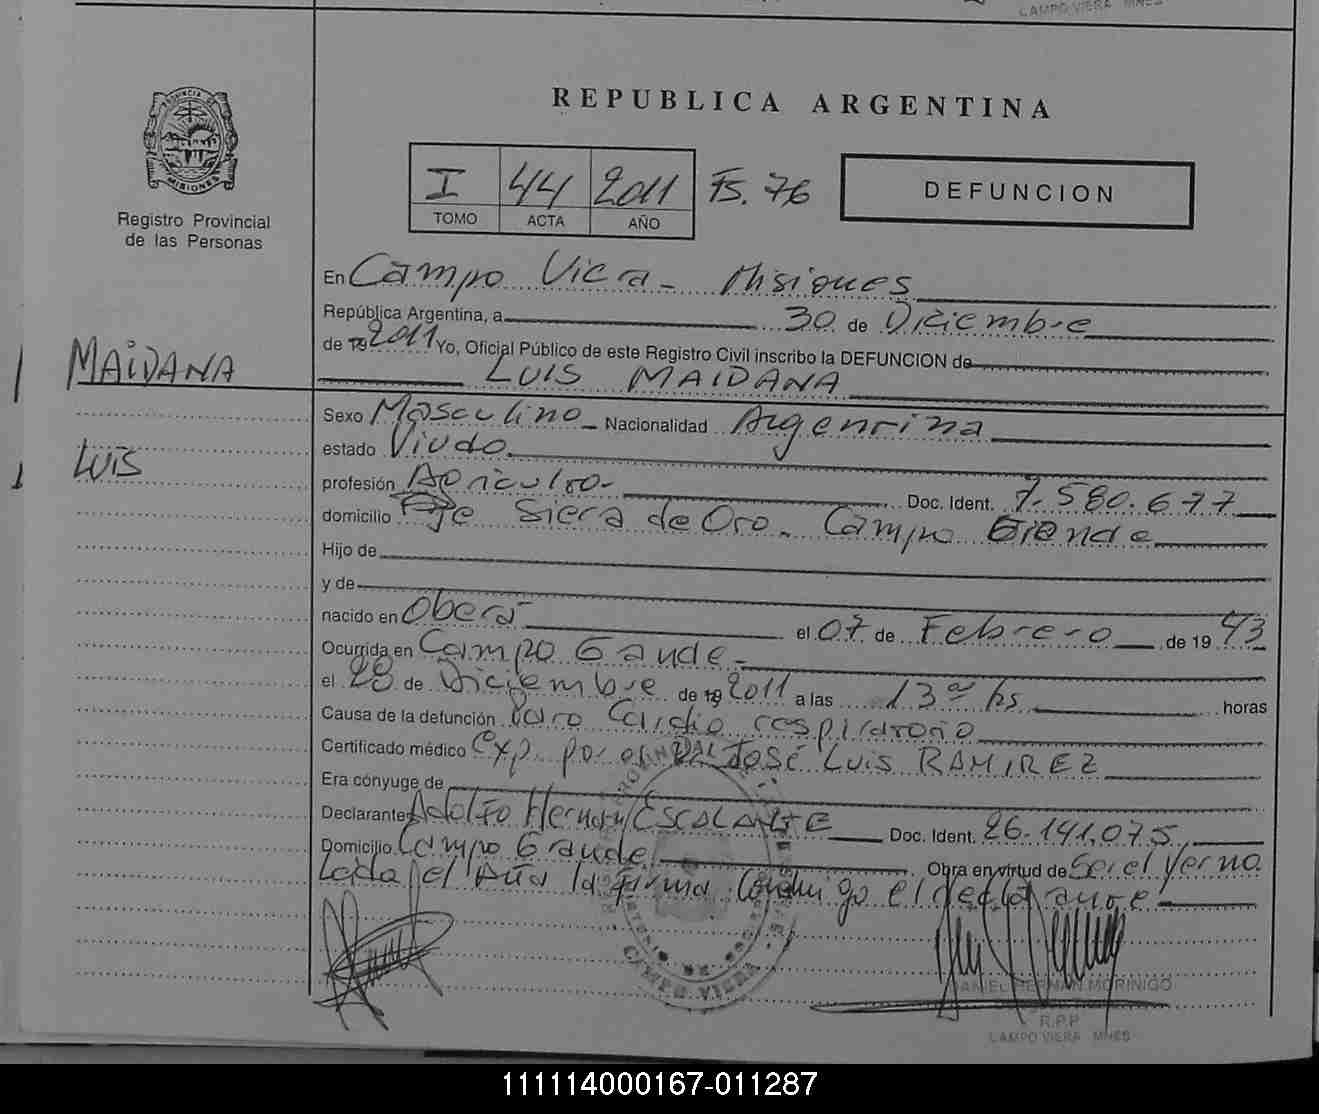 CAMPO VIERA MNES
PROVINCIA DE
MISIONES
Registro Provincial
de las Personas
REPUBLICA ARGENTINA
I 44 2011 Fs. 76
TOMO ACTA AÑO
DEFUNCION
En Campo Viera - Misiones
República Argentina, a 30 de Diciembre
de 19 2011 Yo, Oficial Público de este Registro Civil inscribo la DEFUNCION de
MAIDANA
LUIS MAIDANA
Sexo Masculino - Nacionalidad Argentina
estado Viudo
LUIS
profesión Agricultor - Doc. Ident. 7.580.677
domicilio Pje Siera de Oro - Campo Grande
Hijo de
y de
nacido en Oberá el 07 de Febrero de 19 43
Ocurrida en Campo Grande -
el 28 de Diciembre de 19 2011 a las 13 hs horas
Causa de la defunción Paro Cardio respiratorio
Certificado médico Exp. por el Dr José Luis RAMIREZ
Era cónyuge de
Declarante Adolfo Hernan ESCALANTE Doc. Ident. 26.141.075
Domicilio Campo Grande Obra en virtud de Ser el Yerno
Leida el Acta la firma conmigo el declarante
CAMPO VIERA
DANIEL HERNAN MORINIGO
R.P.P
CAMPO VIERA MNES
111114000167-011287